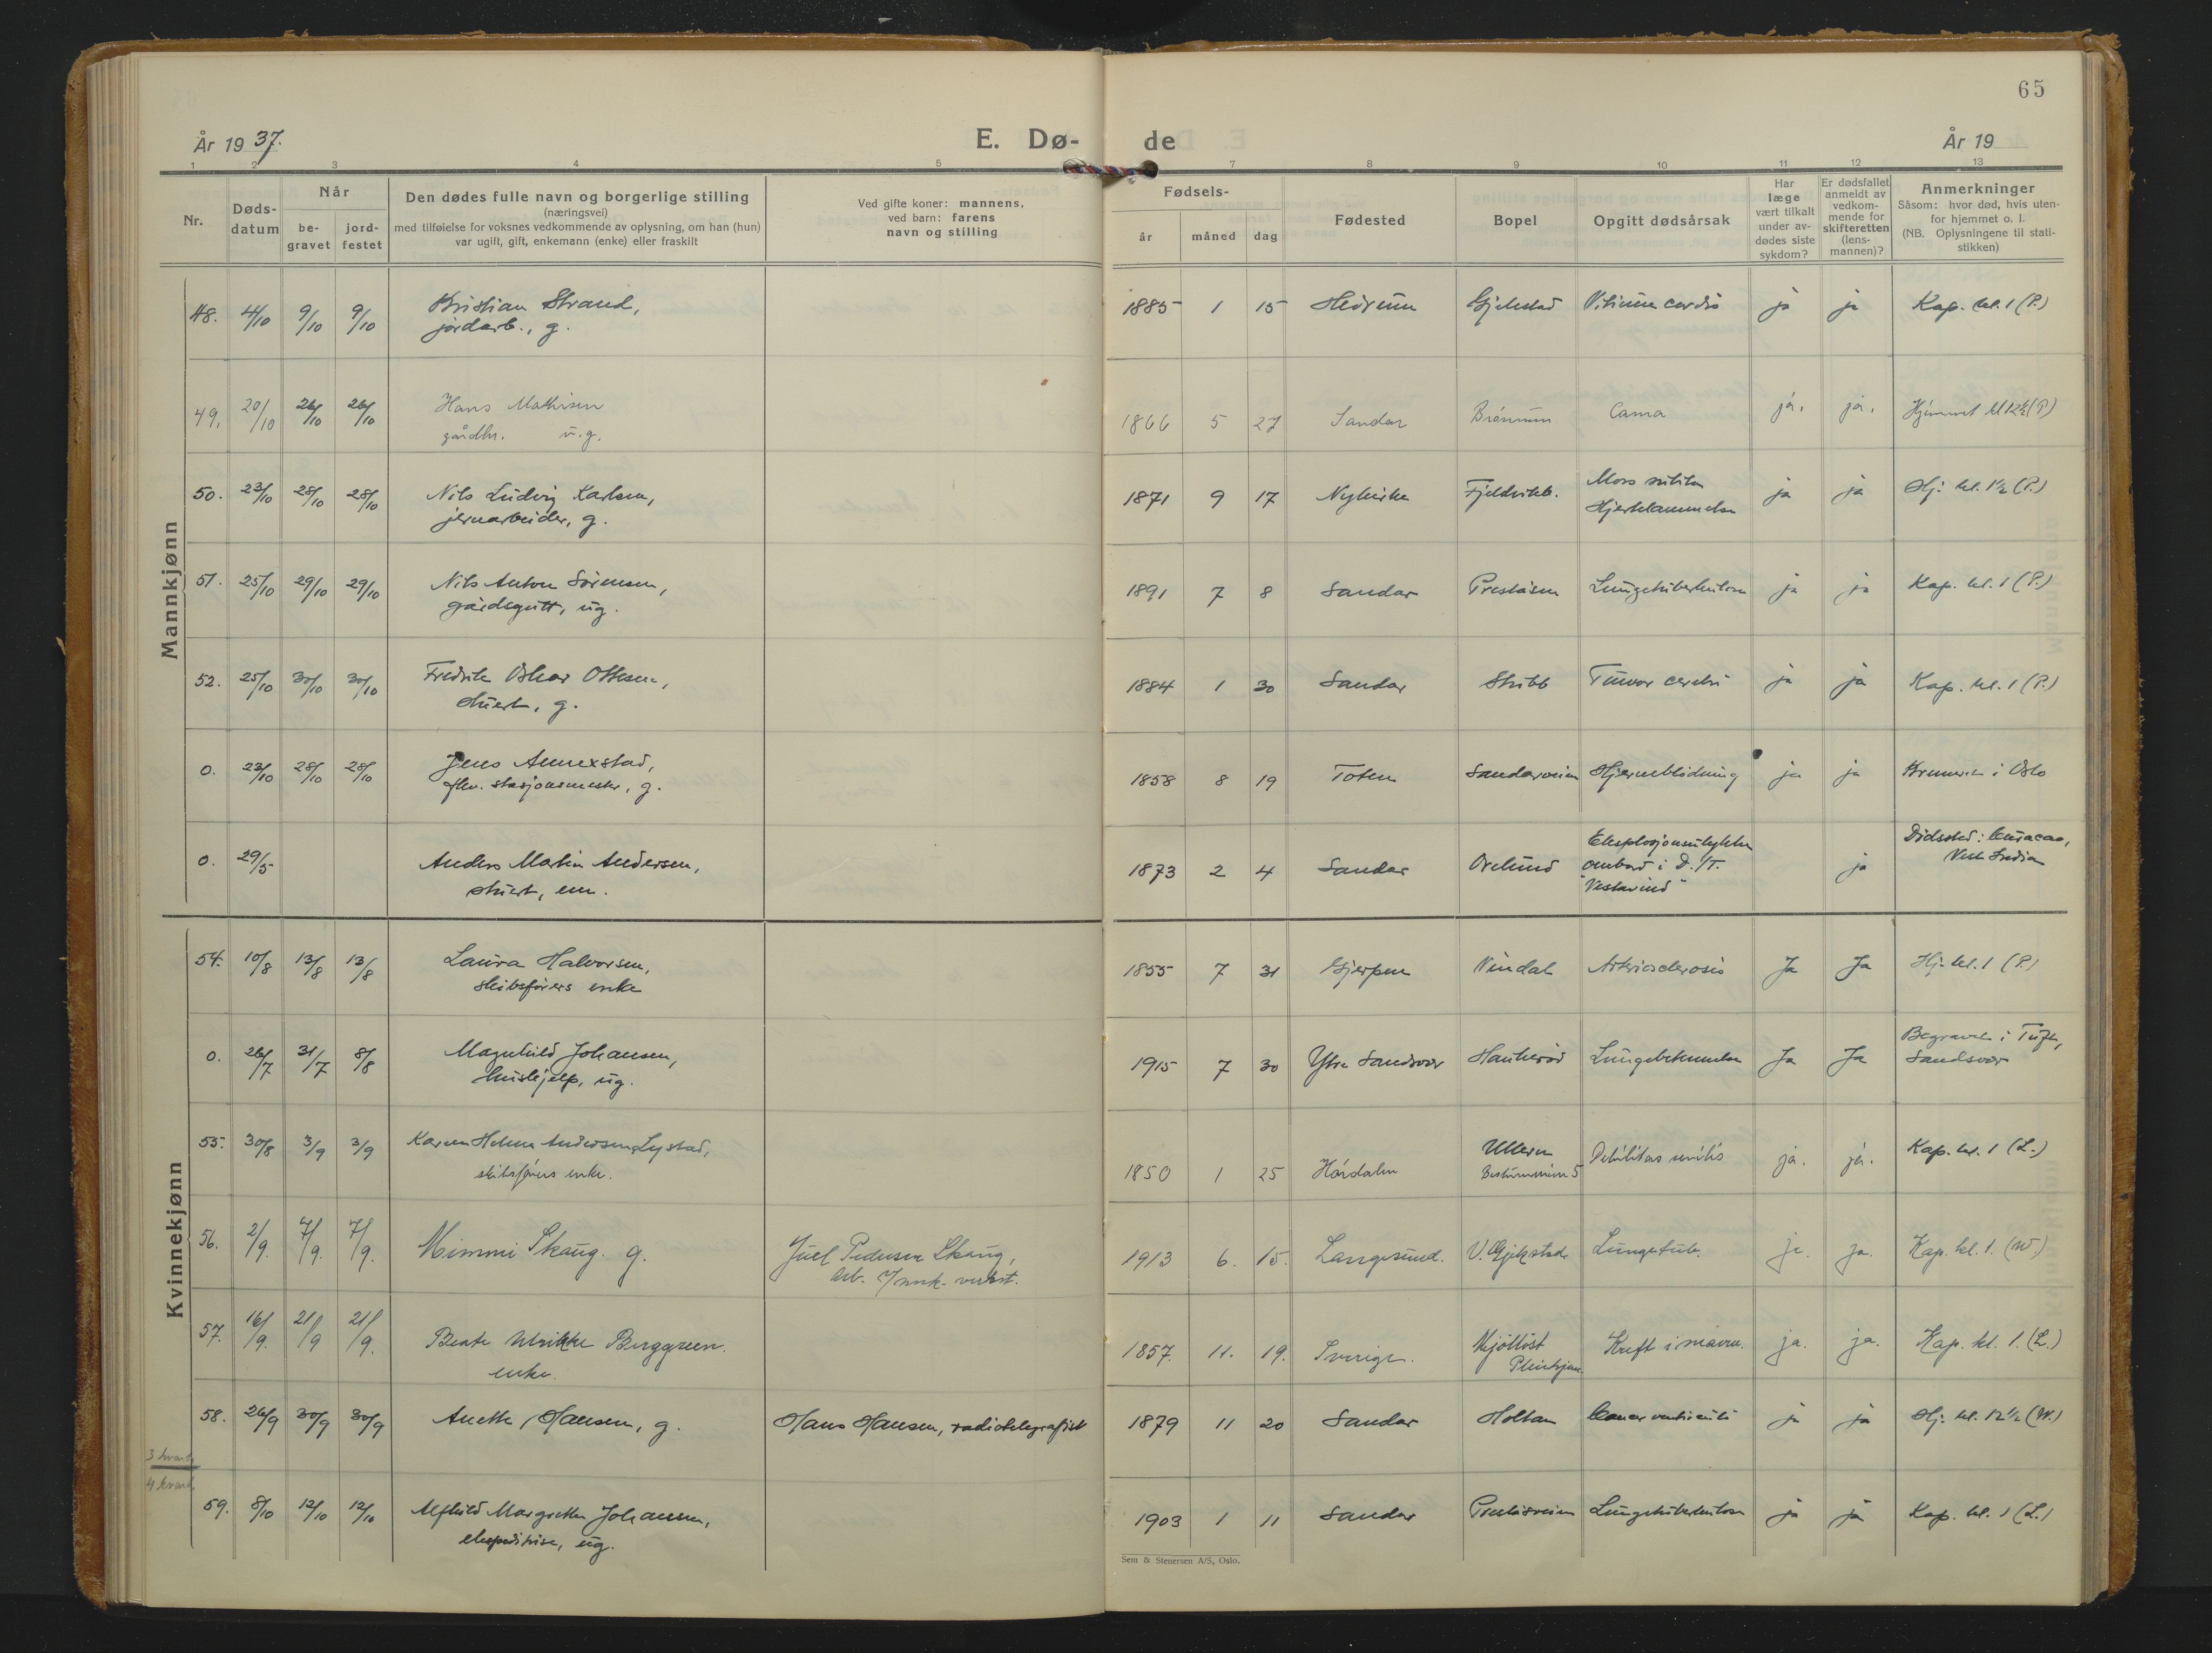 65
År 19 37.
E. Dø-
de
År 19
1 2 3 4 5 7 8 9 10 11 12 13
Nr.
Døds-
datum
Når
be-
gravet
jord-
festet
Den dødes fulle navn og borgerlige stilling
(næringsvei)
med tilføielse for voksnes vedkommende av oplysning, om han (hun)
var ugift, gift, enkemann (enke) eller fraskilt
Ved gifte koner: mannens,
ved barn: farens
navn og stilling
Fødsels-
år
måned
dag
Fødested
Bopel
Opgitt dødsårsak
Har
læge
vært tilkalt
under av-
dødes siste
sykdom?
Er dødsfallet
anmeldt av
vedkom-
mende for
skifteretten
(lens-
mannen)?
Anmerkninger
Såsom: hvor død, hvis uten-
for hjemmet o. l.
(NB. Oplysningene til stati-
stikken)
Mannkjønn
48. 4/10 9/10 9/10 Kristian Strand,
jordarb., g.
1885 1 15 Hedrum Gjekstad Vitium cordis ja ja Kap. kl. 1 (P.)
49. 20/10 26/10 26/10 Hans Mathisen
gårdbr. u.g.
1866 5 27 Sandar ja. ja. Hjemmet kl 12½ (P)
50. 23/10 28/10 28/10 Nils Ludvig Karlsen,
jernarbeider, g.
1871 9 17 Nykirke Fjeldvikb. Mors subita
Hjertelammelse
ja ja Hj. kl. 1½ (P.)
51. 25/10 29/10 29/10 Nils Anton Sørensen,
gårdsgutt, ug.
1891 7 8 Sandar Preståsen Lungetuberkulose ja ja Kap. kl. 1 (P.)
52. 25/10 30/10 30/10 Fredrik Oskar Ottesen,
stuert, g.
1884 1 30 Sandar Skibb Tumor cerebri ja ja Kap. kl. 1 (P.)
0. 23/10 28/10 28/10 Jens Annexstad,
ftv. stasjonsmester, g.
1858 8 19 Toten Sandarveien Hjerneblødning ja ja Kremeres i Oslo
0. 29/5 Anders Martin Andersen,
stuert, em.
1873 2 4 Sandar Orelund Eksplosjonsulykke
ombord i D./T.
"Vestavind"
ja
Dødssted: Curacao,
Vest India
Kvinnekjønn
54. 10/8 13/8 13/8 Laura Halvorsen,
skibsførers enke
1855 7 31 Gjerpen Vindal Arteriosclerosis Ja Ja Hj. kl. 1 (P.)
0. 26/7 31/7 8/8 Magnhild Johansen,
hushjelp, ug.
1915 7 30 Ytre Sandsvær Haukerød Lungebetennelse Ja Ja
Begravet i Tuft,
Sandsvær
55. 30/8 3/9 3/9 Karen Helene Andersen Lystad,
skibsførers enke.
1850 1 25 Hórdalen Ullern
Debilitas senilis ja. ja. Kap. kl. 1 (L.)
56. 2/9. 7/9. 7/9. Mimmi Skaug. g.
Juel Pedersen Skaug,
arb. Fmnk. verkst.
1913 6. 15. Langesund. V. Gjekstad. Lungetub. ja. ja. Kap. kl. 1. (W)
57. 16/9. 21/9 21/9. Beate Ulrikke Berggreen.
enke.
1857. 11. 19. Sverige. Mjöltöst
Kreft i maven. ja. ja. Kap. kl. 1. (L.)
58. 26/9 30/9 30/9 Anette Hansen, g.
Hans Hansen, radiotelegrafist
1879 11 20 Sandar Holtan Cancer ventriculi ja ja Hj. kl. 12½ (W.)
3 kvart.
4 kvart.
59. 8/10 12/10 12/10 Alfhild Margrethe Johansen,
ekspeditrise, ug.
1903 1 11 Sandar Preståsveien Lungetuberkulose ja ja Kap. kl. 1 (L.)
Sem & Stenersen A/S, Oslo.